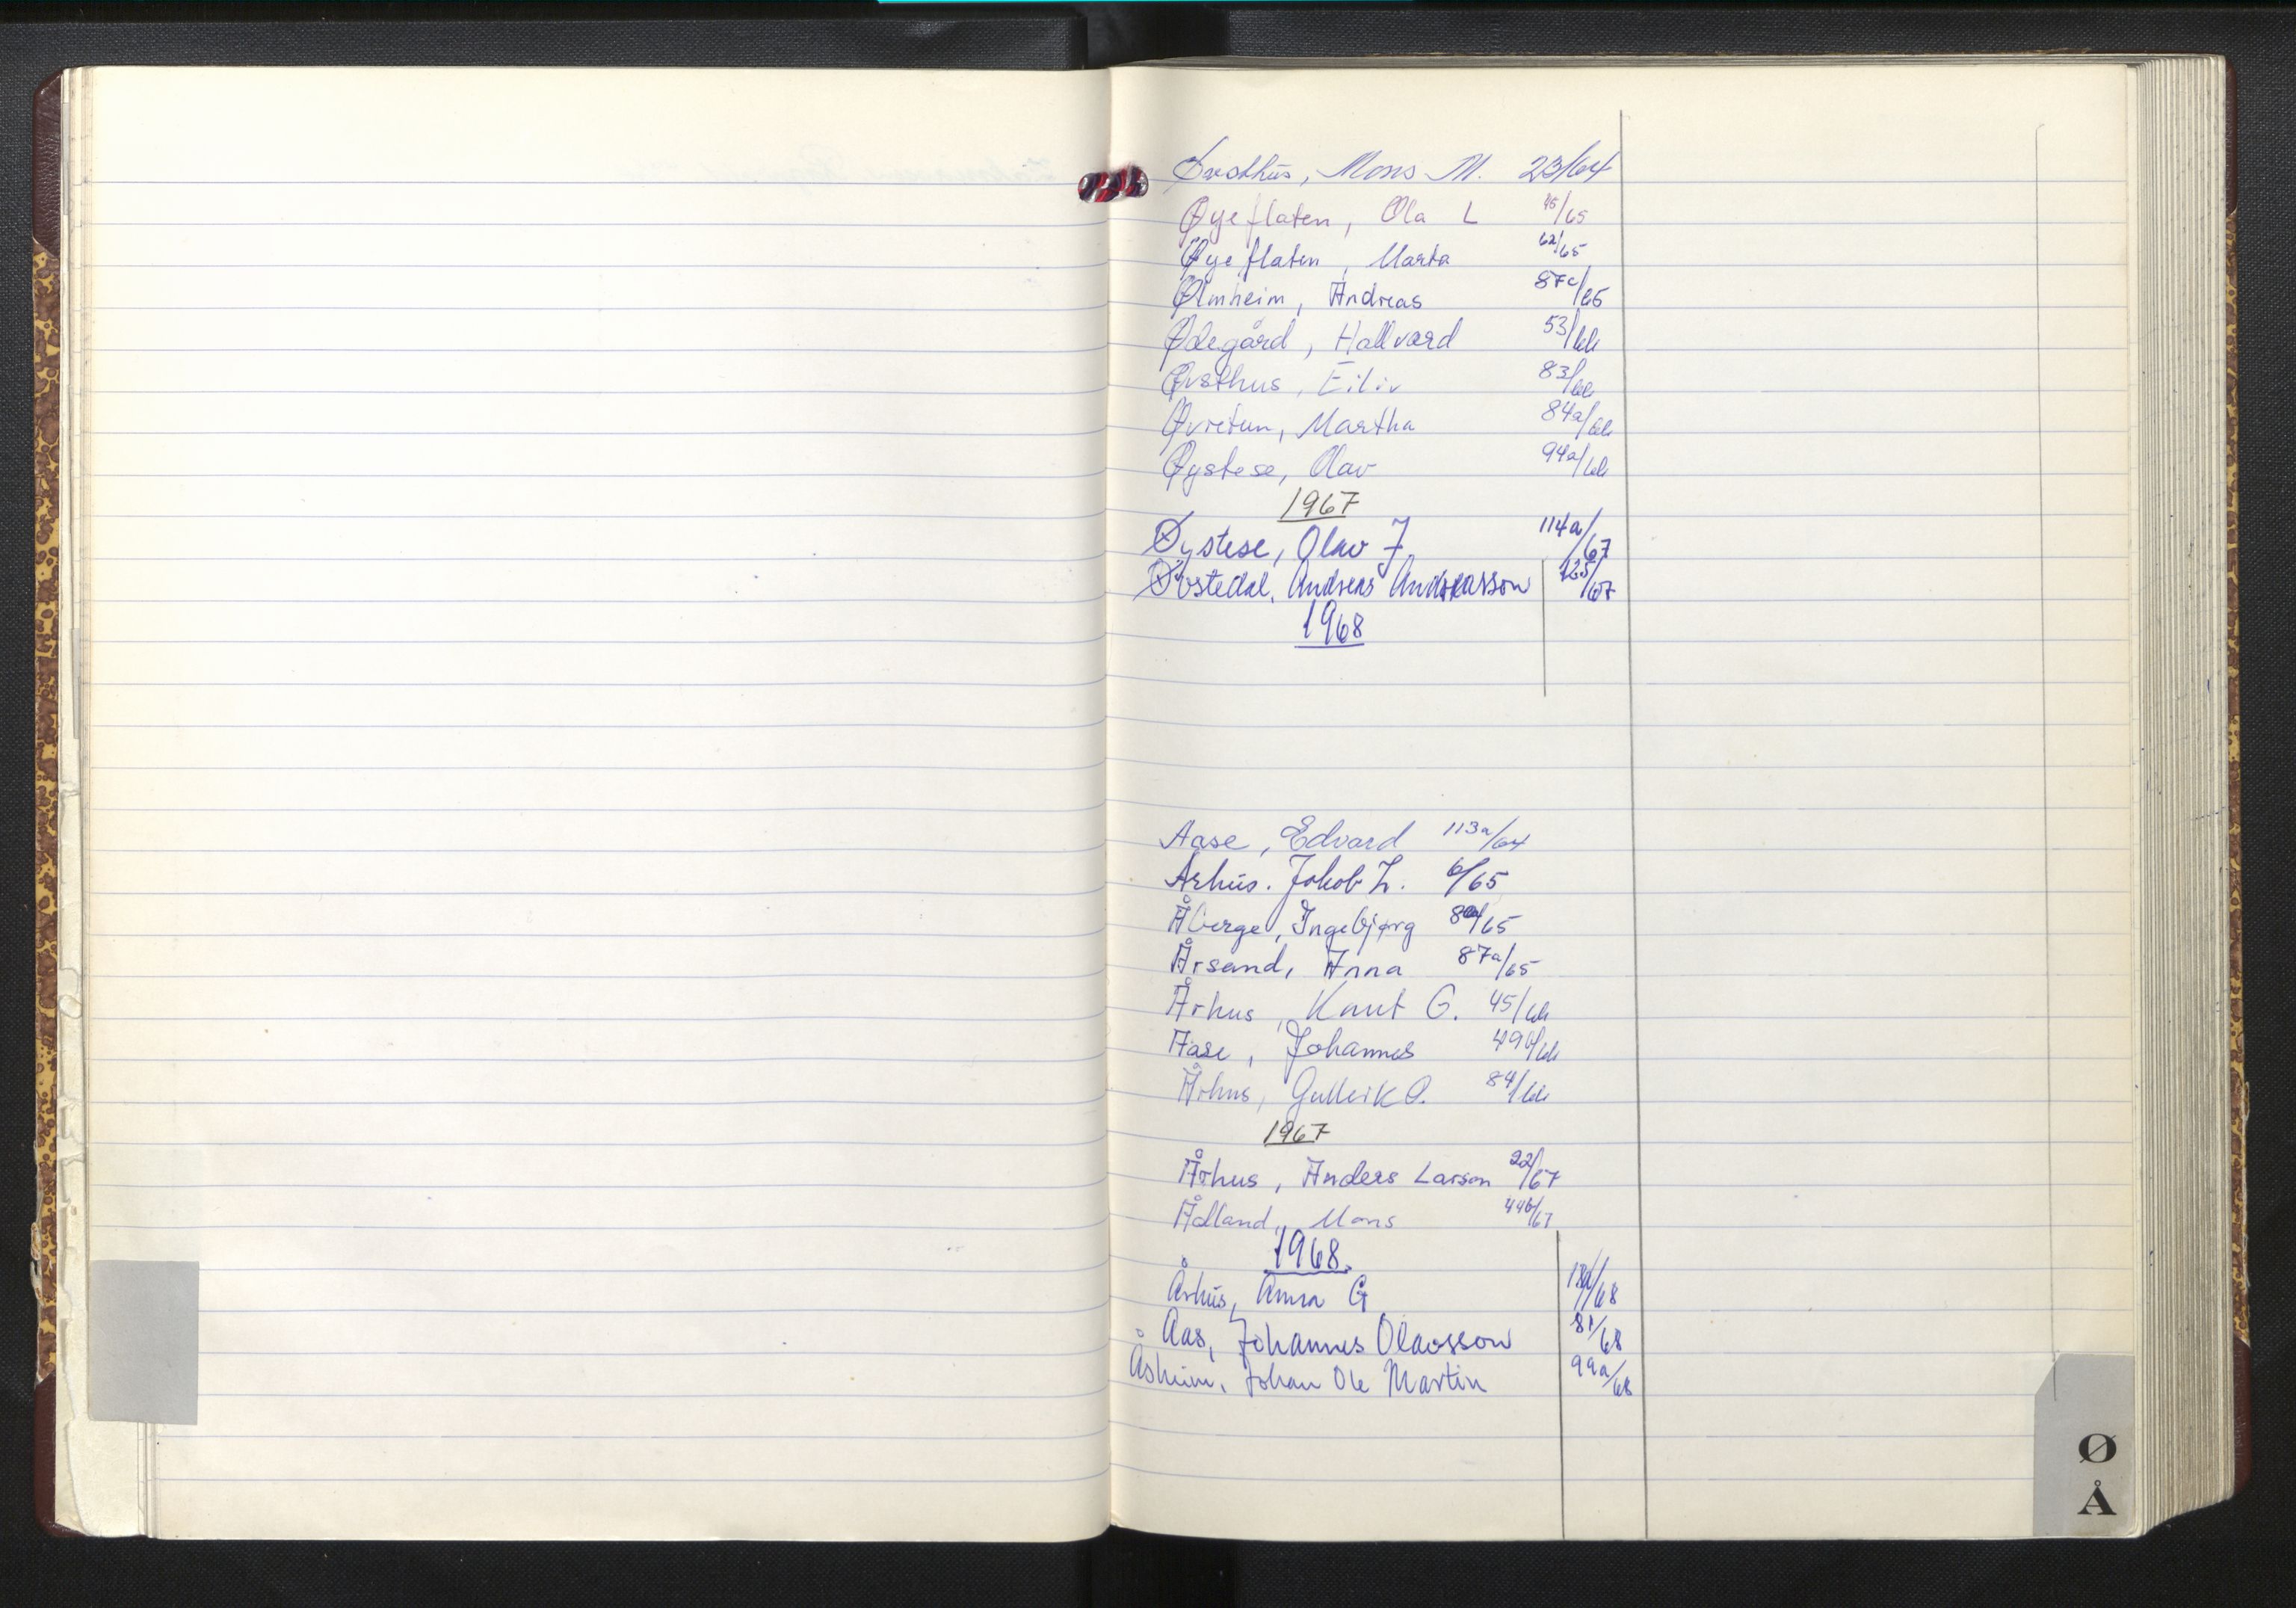 Øvsthus, Mons M. 23/64
Øyeflaten, Ola L 45/65
Øyeflaten, Marta 62/65
Ølmheim, Andreas 87c/65
Ødegård, Hallvard 53/66
Øvsthus, Eiliv 83/66
Øvretun, Martha 84a/66
Øystese, Olav 94a/66
1967
Øystese, Olav J 114a/67
Øvstedal, Andreas Andreasson 125/67
1968
Aase, Edvard 113a/64
Århus. Jakob L. 6/65
Åberge, Ingebjørg /65
Årsand, Anna 87a/65
Århus, Knut G. 45/66
Aase, Johannes 49b/66
Århus, Gulleik O. 84/66
1967
Århus, Anders Larson 22/67
Ådland, Mons 44b/67
1968.
Århus, Anna G /68
Aas, Johannes Olavsson 81/68
Åsheim, Johan Ole Martin 99a/68
Ø
Å